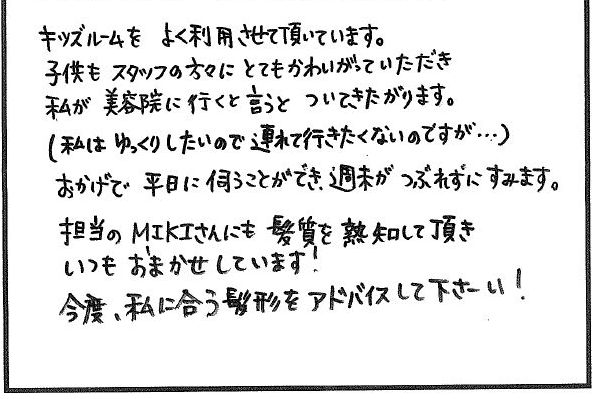 キッズルームを よく利用させて頂いています。
子供も スタッフの方々に とてもかわいがっていただき
私が 美容院に行くと言うと ついてきたがります。
(私は ゆっくりしたいので 連れて行きたくないのですが…)
おかげで 平日に伺うことができ、週末が つぶれずに すみます。
担当の MIKIさんにも 髪質を 熟知して頂き
いつも おまかせしています!
今度、私に合う髪形を アドバイスして下さーい!